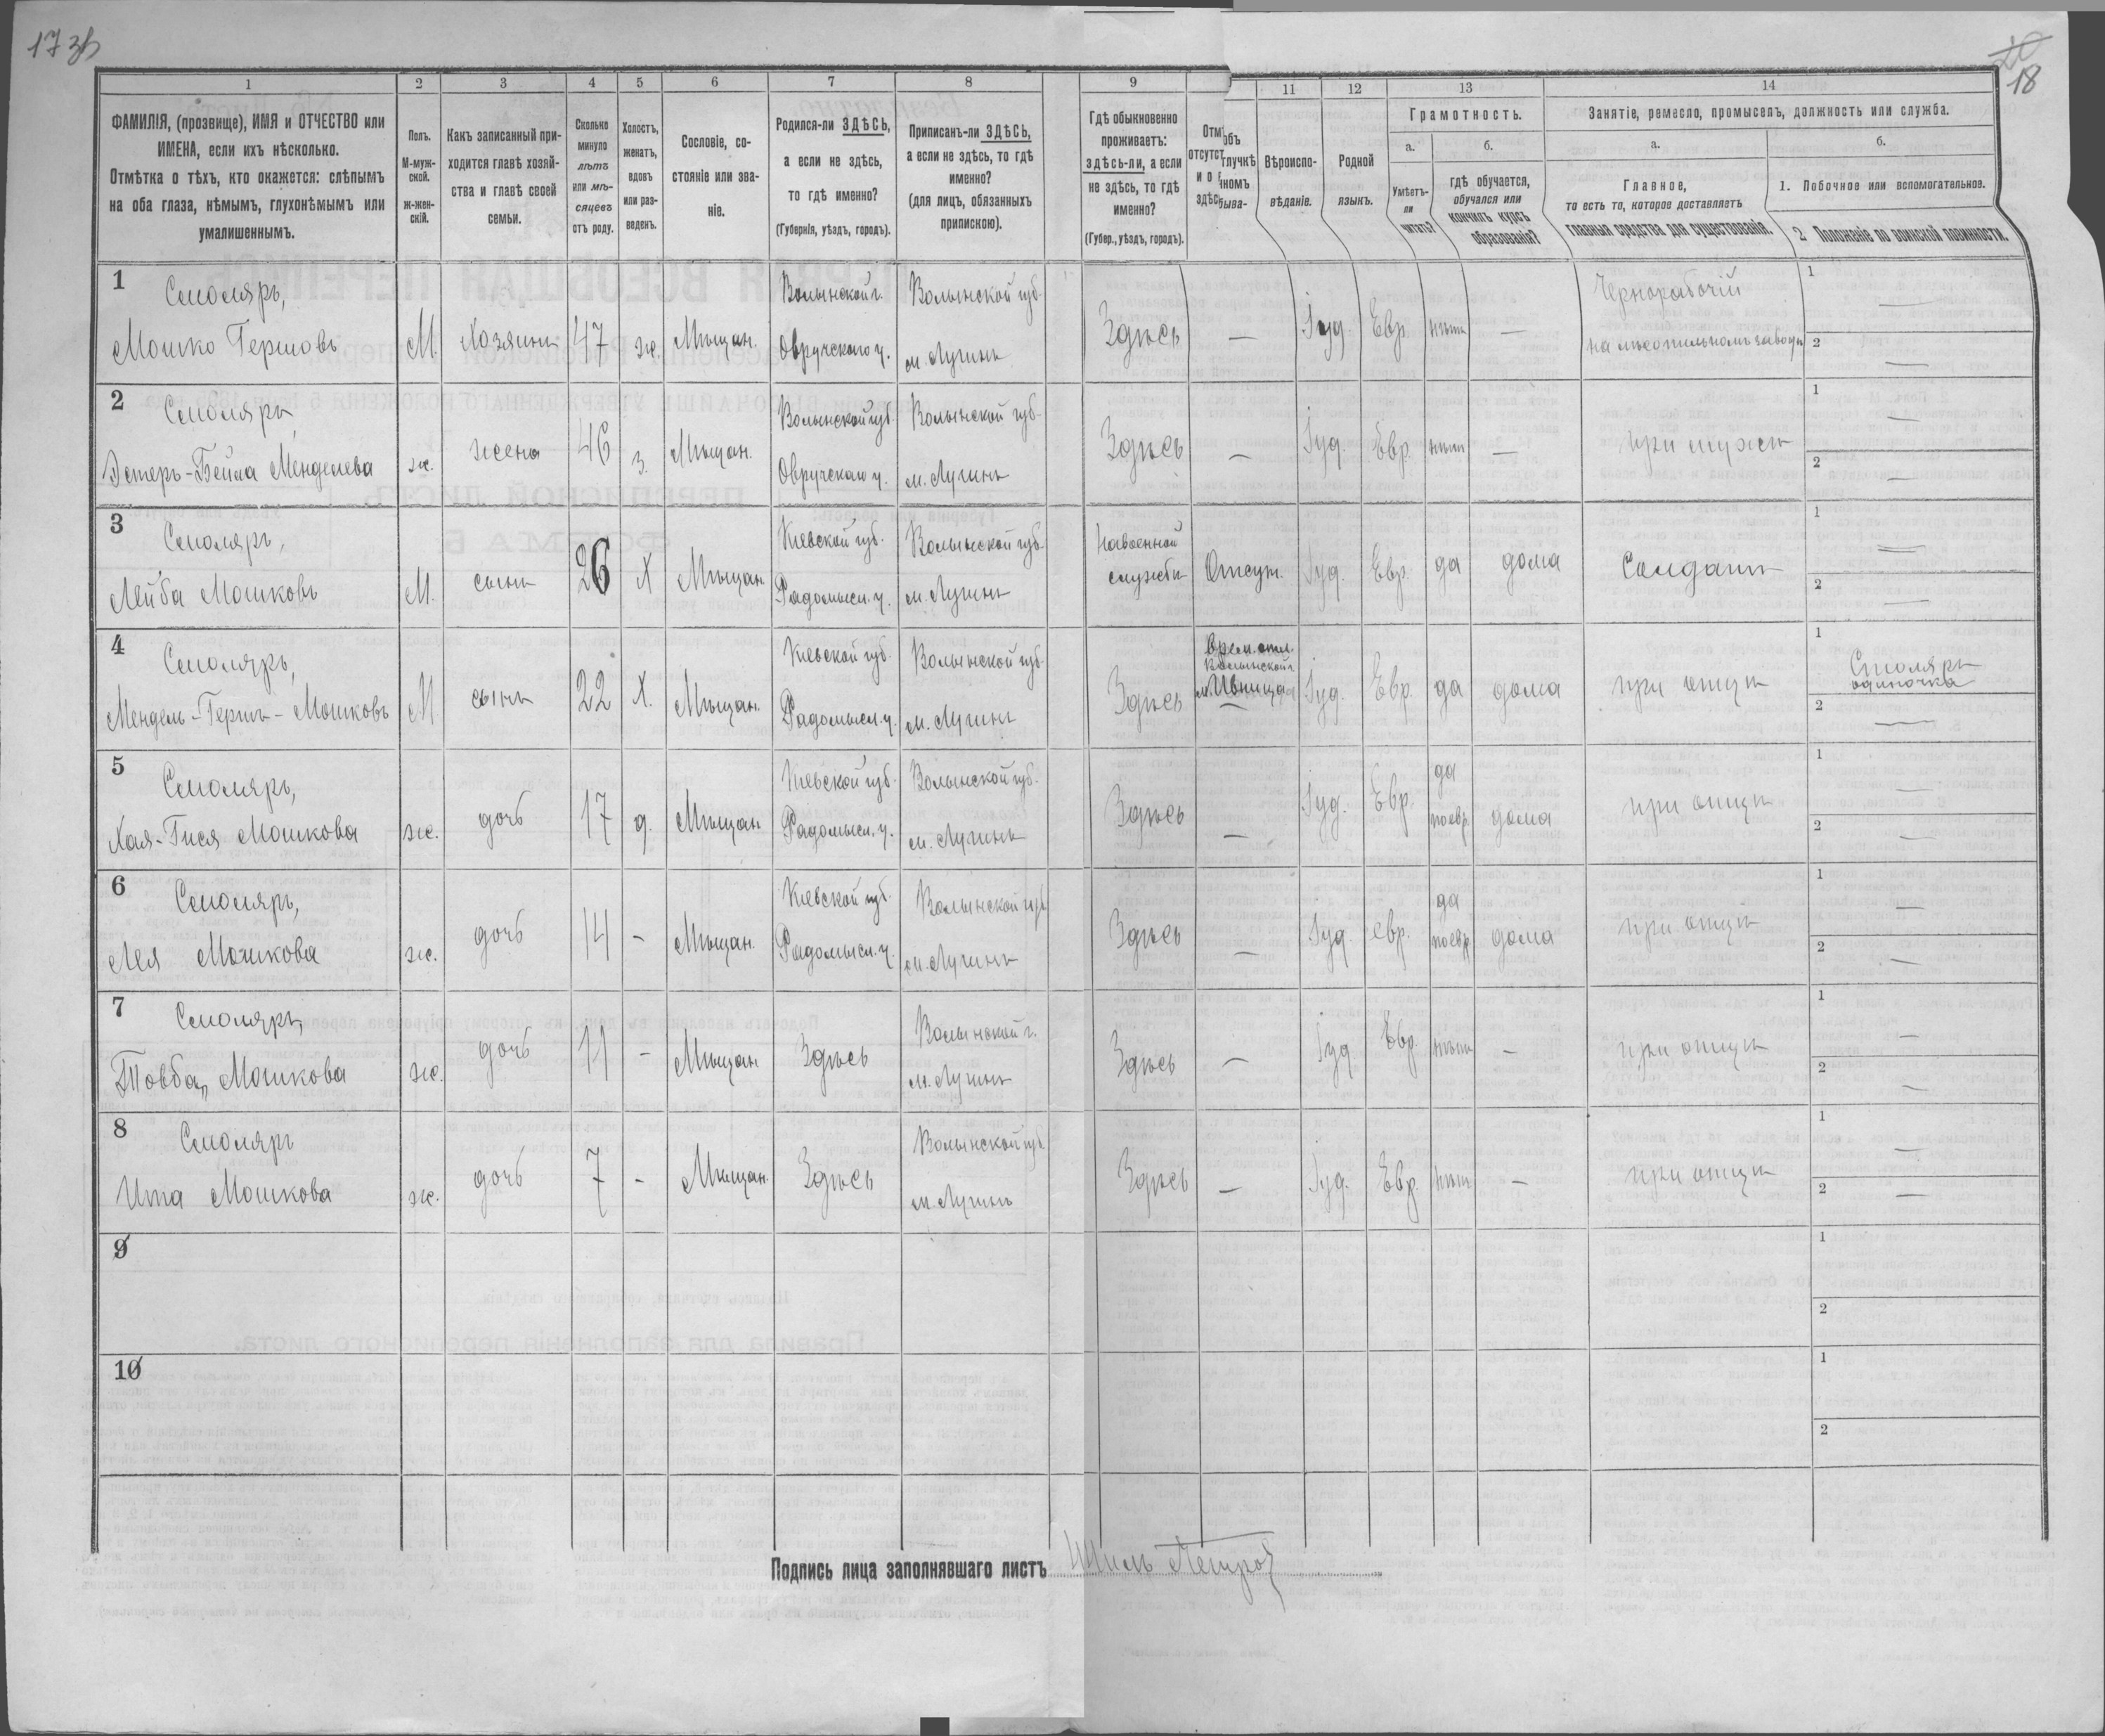 173б
20
18
1 2 3 4 5 6 7 8 9 11 12 13 14
ФАМИЛІЯ, (прозвище), ИМЯ и ОТЧЕСТВО или
ИМЕНА, если ихъ нѣсколько.
Отмѣтка о тѣхъ, кто окажется: слѣпымъ
на оба глаза, нѣмымъ, глухонѣмымъ или
умалишеннымъ.
Полъ.
М-муж-
ской.
ж-жен-
скій.
Какъ записанный при-
ходится главѣ хозяй-
ства и главѣ своей
семьи.
Сколько
минуло
лѣтъ
или мѣ-
сяцевъ
отъ роду.
Холостъ,
женатъ,
вдовъ
или раз-
веденъ.
Сословіе, со-
стояніе или зва-
ніе.
Родился-ли ЗДѢСЬ,
а если не здѣсь,
то гдѣ именно?
(Губернія, уѣздъ, городъ).
Приписанъ-ли ЗДѢСЬ,
а если не здѣсь, то гдѣ
именно?
(для лицъ, обязанныхъ
припискою).
Гдѣ обыкновенно
проживаетъ:
здѣсь-ли, а если
не здѣсь, то гдѣ
именно?
(Губер., уѣздъ, городъ).
Отм объ
отсутст лучкѣ
и о номъ
здѣс быва-
Вѣроиспо-
вѣданіе.
Родной
языкъ.
Грамотность.
а.
Умѣетъ-
ли
читать?
б.
гдѣ обучается,
обучался или
кончилъ курсъ
образованія?
Занятіе, ремесло, промыселъ, должность или служба.
а.
Главное,
то есть то, которое доставляетъ
главныя средства для существованія.
б.
1. Побочное или вспомогательное.
2 Положеніе по воинской повинности.
1 Смоляръ, Волынской г. Волынской губ. Чернорабочій 1 —
Мошко Гершовъ М. Хозяинъ 47 ж. Мѣщан. Овручскаго у. м. Лугинъ Здѣсь — Іуд. Евр. нѣтъ — на лѣсопильномъ заводѣ 2 —
2 Смоляръ Волынской губ. Волынской губ. 1 —
Эстеръ-Бейла Менделева ж. жена 46 з. Мѣщан. Овручскаго у. м. Лугинъ Здѣсь — Іуд. Евр. нѣтъ — при мужѣ 2 —
3 Смоляръ, Кіевской губ. Волынской губ. На военной 1 —
Лейба Мошковъ М. сынъ 26 Х Мѣщан. Радомысл. у. м. Лугинъ службѣ Отсут. Іуд. Евр. да дома Солдатъ 2 —
4 Смоляръ, Кіевской губ. Волынской губ. Врем. отл. 1 Столяръ
Волынской г. одиночка
Мендель-Гершъ-Мошковъ М сынъ 22 Х. Мѣщан. Радомысл. у. м. Лугинъ Здѣсь м. Ивница Іуд. Евр. да дома при отцѣ 2 —
5 Смоляръ, Кіевской губ. Волынской губ. да 1 —
Хая-Гися Мошкова ж. дочь 17 д. Мѣщан Радомысл. у. м. Лугинъ Здѣсь — Іуд. Евр. по евр. дома при отцѣ 2 —
6 Смоляръ, Кіевской губ. Волынской губ. да 1 —
Лея Мошкова ж. дочь 14 - Мѣщан. Радомысл. у. м. Лугинъ Здѣсь — Іуд. евр. по евр. дома при отцѣ 2 —
7 Смоляръ, Волынской г. 1 —
Товба Мошкова ж. дочь 11 - Мѣщан Здѣсь м. Лугинъ Здѣсь — Іуд Евр. нѣтъ — при отцѣ 2 —
8 Смоляръ Волынской губ. 1 —
Ита Мошкова ж. дочь 7 - Мѣщан. Здѣсь м. Лугинъ Здѣсь — Іуд. Евр. нѣтъ — при отцѣ 2 —
9 1
2
10 1
2
Подпись лица заполнявшаго листъ